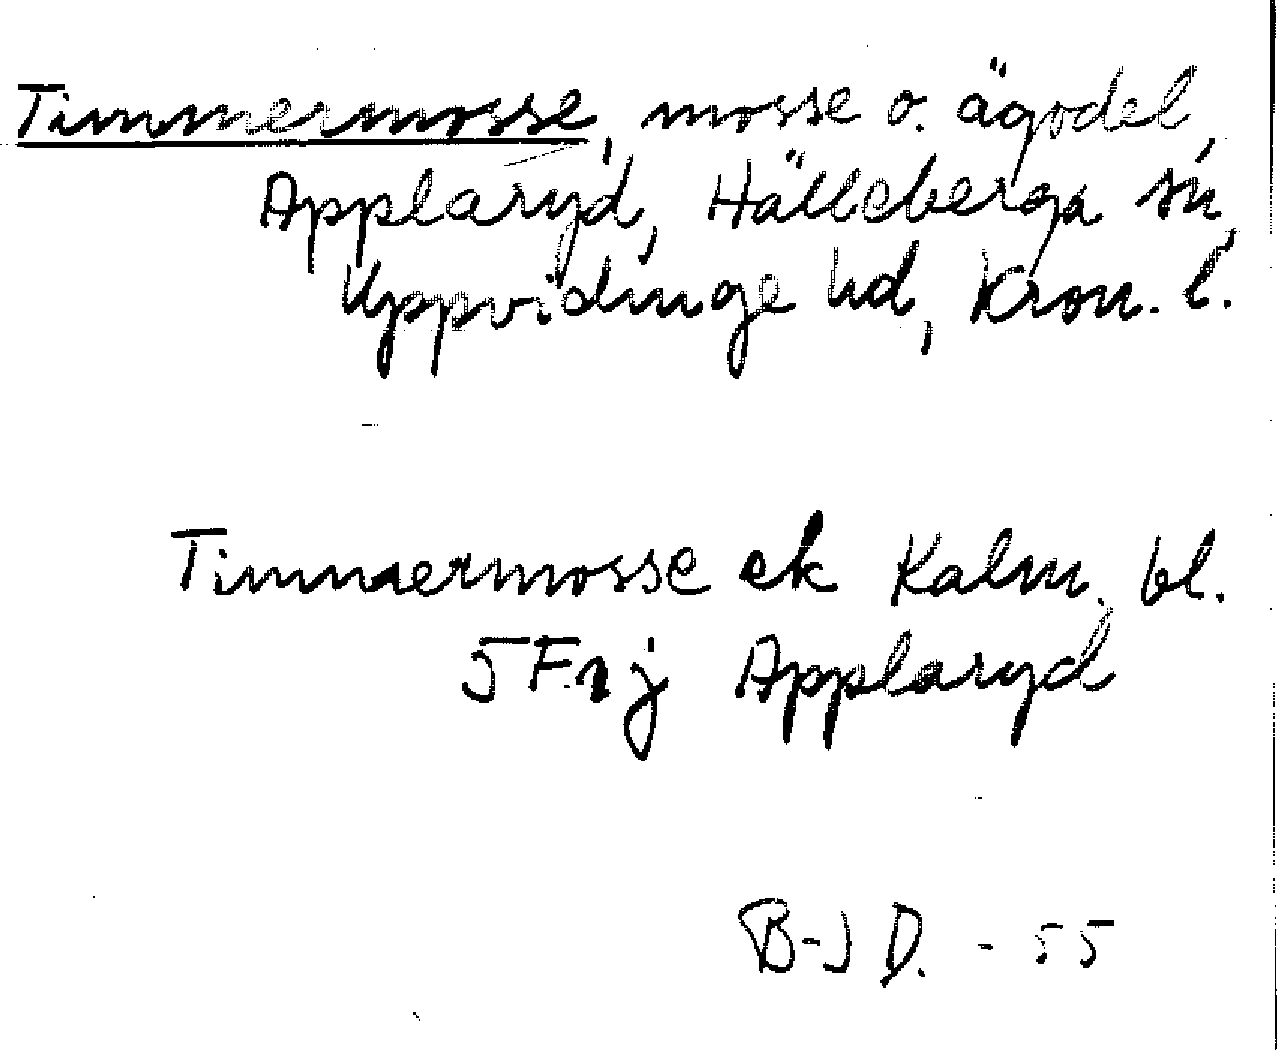 Timmermosse, mosse o. ägodel,
Applaryd, Hälleberga sn,
Uppvidinge hd, Kron. l.
Timmermosse ek Kalm. bl.
5F1j Applaryd
B-J D. - 55